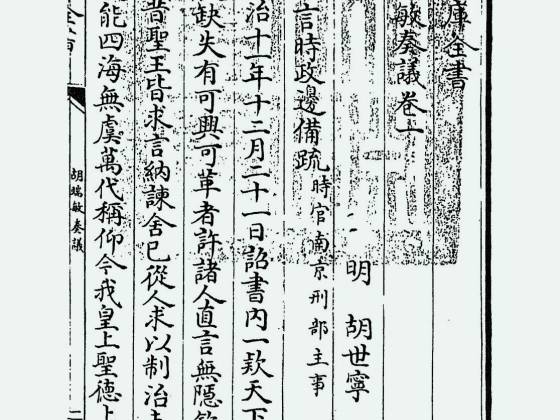 庫全書
敏奏議卷一
明 胡世寧
言時政邊備疏 時官南京刑部主事
治十一年十二月二十一日詔書内一欵天下
缺失有可興可革者許諸人直言無隱欽
昔聖王皆求言納諫舍已從人求以制治
能四海無虞萬代稱仰今我皇上聖德上
全書
胡端敏奏議
二